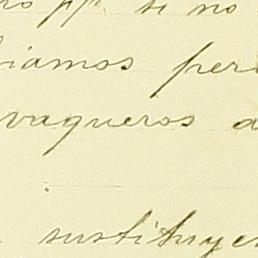 pp. si no
biamos per
vaqueros a
sustituye